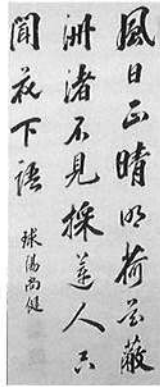 風日正晴明荷花蔽
洲渚不見採蓮人只
聞花下語
球陽尚健